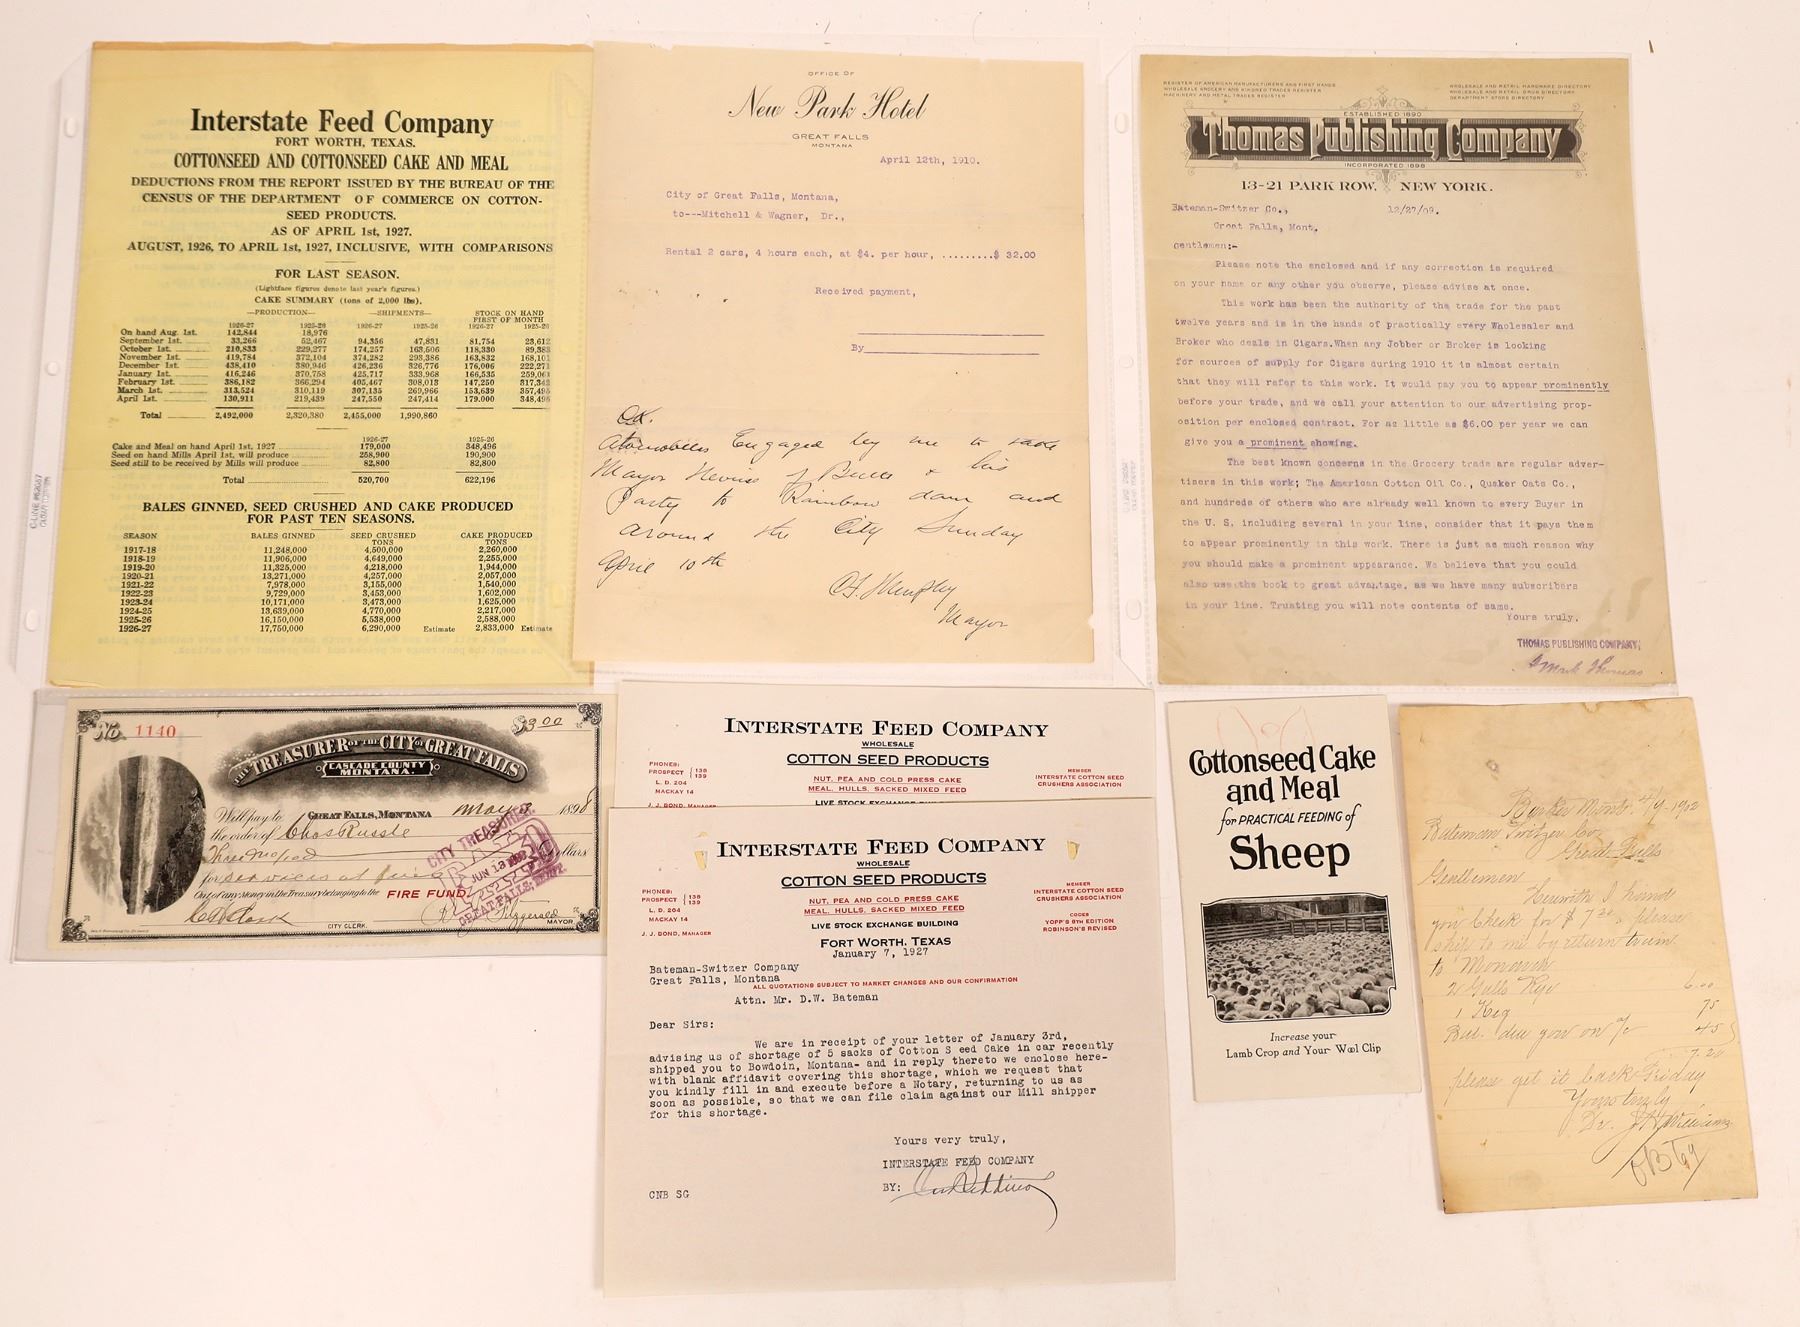 Interstate Feed Company
FORT WORTH, TEXAS.
COTTONSEED AND COTTONSEED CAKE AND MEAL
DEDUCTIONS FROM THE REPORT ISSUED BY THE BUREAU OF THE
CENSUS OF THE DEPARTMENT OF COMMERCE ON COTTON-
SEED PRODUCTS.
AS OF APRIL 1st, 1927.
AUGUST, 1926, TO APRIL 1st, 1927, INCLUSIVE, WITH COMPARISONS
FOR LAST SEASON.
(Lightface figures denote last year's figures.)
CAKE SUMMARY (tons of 2,000 lbs).
—PRODUCTION— —SHIPMENTS— STOCK ON HAND
FIRST OF MONTH
1926-27 1925-26 1926-27 1925-26 1926-27 1925-26
On hand Aug. 1st. 142,844 18,976
September 1st. 33,266 52,467 94,356 47,831 81,754 23,612
October 1st. 210,833 229,277 174,257 163,506 118,330 89,383
November 1st. 419,784 372,104 374,282 293,386 163,832 168,101
December 1st. 438,410 380,946 426,236 326,776 176,006 222,271
January 1st. 416,246 370,758 425,717 333,968 166,535 259,061
February 1st. 386,182 366,294 405,467 308,013 147,250 317,342
March 1st. 313,524 310,119 307,135 269,966 153,639 357,495
April 1st. 130,911 219,439 247,550 247,414 179,000 348,496
Total 2,492,000 2,320,380 2,455,000 1,990,860
1926-27 1925-26
Cake and Meal on hand April 1st, 1927 179,000 348,496
Seed on hand Mills April 1st, will produce 258,900 190,900
Seed still to be received by Mills will produce 82,800 82,800
Total 520,700 622,196
BALES GINNED, SEED CRUSHED AND CAKE PRODUCED
FOR PAST TEN SEASONS.
SEASON BALES GINNED SEED CRUSHED CAKE PRODUCED
TONS TONS
1917-18 11,248,000 4,500,000 2,260,000
1918-19 11,906,000 4,649,000 2,255,000
1919-20 11,325,000 4,218,000 1,944,000
1920-21 13,271,000 4,257,000 2,057,000
1921-22 7,978,000 3,155,000 1,540,000
1922-23 9,729,000 3,453,000 1,602,000
1923-24 10,171,000 3,473,000 1,625,000
1924-25 13,639,000 4,770,000 2,217,000
1925-26 16,150,000 5,538,000 2,588,000
1926-27 17,750,000 6,290,000 Estimate 2,833,000 Estimate
OFFICE OF
New Park Hotel
GREAT FALLS
MONTANA
April 12th, 1910.
City of Great Falls, Montana,
to---Mitchell & Wagner, Dr.,
Rental 2 cars, 4 hours each, at $4. per hour, .........$ 32.00
Received payment,
By
OK.
Atomobiles Engaged by me to take
Mayor Nevins of Butte & his
Party to Rainbow dam and
around the City Sunday
April 10th
Mayor
REGISTER OF AMERICAN MANUFACTURERS AND FIRST HANDS
WHOLESALE GROCERY AND KINDRED TRADES REGISTER
MACHINERY AND METAL TRADES REGISTER
WHOLESALE AND RETAIL HARDWARE DIRECTORY
WHOLESALE AND RETAIL DRUG DIRECTORY
DEPARTMENT STORE DIRECTORY
ESTABLISHED 1890
Thomas Publishing Company
INCORPORATED 1898
13-21 PARK ROW, NEW YORK.
Bateman-Switzer Co., 12/27/09.
Great Falls, Mont.
Gentlemen:-
Please note the enclosed and if any correction is required
on your name or any other you observe, please advise at once.
This work has been the authority of the trade for the past
twelve years and is in the hands of practically every Wholesaler and
Broker who deals in Cigars.When any Jobber or Broker is looking
for sources of supply for Cigars during 1910 it is almost certain
that they will refer to this work. It would pay you to appear prominently
before your trade, and we call your attention to our advertising prop-
osition per enclosed contract. For as little as $6.00 per year we can
give you a prominent showing.
The best known concerns in the Grocery trade are regular adver-
tisers in this work; The American Cotton Oil Co., Quaker Oats Co.,
and hundreds of others who are already well known to every Buyer in
the U. S. including several in your line, consider that it pays them
to appear prominently in this work. There is just as much reason why
you should make a prominent appearance. We believe that you could
also use the book to great advantage, as we have many subscribers
in your line. Trusting you will note contents of same.
Yours truly,
THOMAS PUBLISHING COMPANY,
Mark Thomas
No. 1140 $3.00
THE TREASURER OF THE CITY OF GREAT FALLS
CASCADE COUNTY
MONTANA.
GREAT FALLS, MONTANA May 3 1898
Will pay to
the order of Chas Russle
Three no/00 Dollars
for services at fire
Out of any Money in the Treasury belonging to the FIRE FUND
CITY CLERK.
Fitzgerald
MAYOR
CITY TREASURER
PAID
JUN 13 1898
GREAT FALLS, MONT.
INTERSTATE FEED COMPANY
WHOLESALE
COTTON SEED PRODUCTS
NUT, PEA AND COLD PRESS CAKE
MEAL, HULLS, SACKED MIXED FEED
LIVE STOCK EXCHANGE
PHONES:
PROSPECT 138
139
L. D. 204
MACKAY 14
J. J. BOND, MANAGER
MEMBER
INTERSTATE COTTON SEED
CRUSHERS ASSOCIATION
INTERSTATE FEED COMPANY
WHOLESALE
COTTON SEED PRODUCTS
NUT, PEA AND COLD PRESS CAKE
MEAL, HULLS, SACKED MIXED FEED
LIVE STOCK EXCHANGE BUILDING
FORT WORTH, TEXAS
PHONES:
PROSPECT 138
139
L. D. 204
MACKAY 14
J. J. BOND, MANAGER
MEMBER
INTERSTATE COTTON SEED
CRUSHERS ASSOCIATION
CODES
YOPP'S 8TH EDITION
ROBINSON'S REVISED
January 7, 1927
Bateman-Switzer Company
Great Falls, Montana
ALL QUOTATIONS SUBJECT TO MARKET CHANGES AND OUR CONFIRMATION
Attn. Mr. D.W. Bateman
Dear Sirs:
We are in receipt of your letter of January 3rd,
advising us of shortage of 5 sacks of Cotton S eed Cake in car recently
shipped you to Bowdoin, Montana- and in reply thereto we enclose here-
with blank affidavit covering this shortage, which we request that
you kindly fill in and execute before a Notary, returning to us as
soon as possible, so that we can file claim against our Mill shipper
for this shortage.
Yours very truly,
INTERSTATE FEED COMPANY
BY:
CNB SG
Cottonseed Cake
and Meal
for PRACTICAL FEEDING of
Sheep
Increase your
Lamb Crop and Your Wool Clip
Barker Mont. 4/9-1902
Bateman Switzer Co
Great Falls
Gentlemen
Herewith I hand
you Check for $7.20, please
ship to me by return train
to Monarch
2 Galls Rye 6.00
1 Keg 75
Bal. due you on a/c 45
7.20
please get it back Friday
Yours truly
Dr.